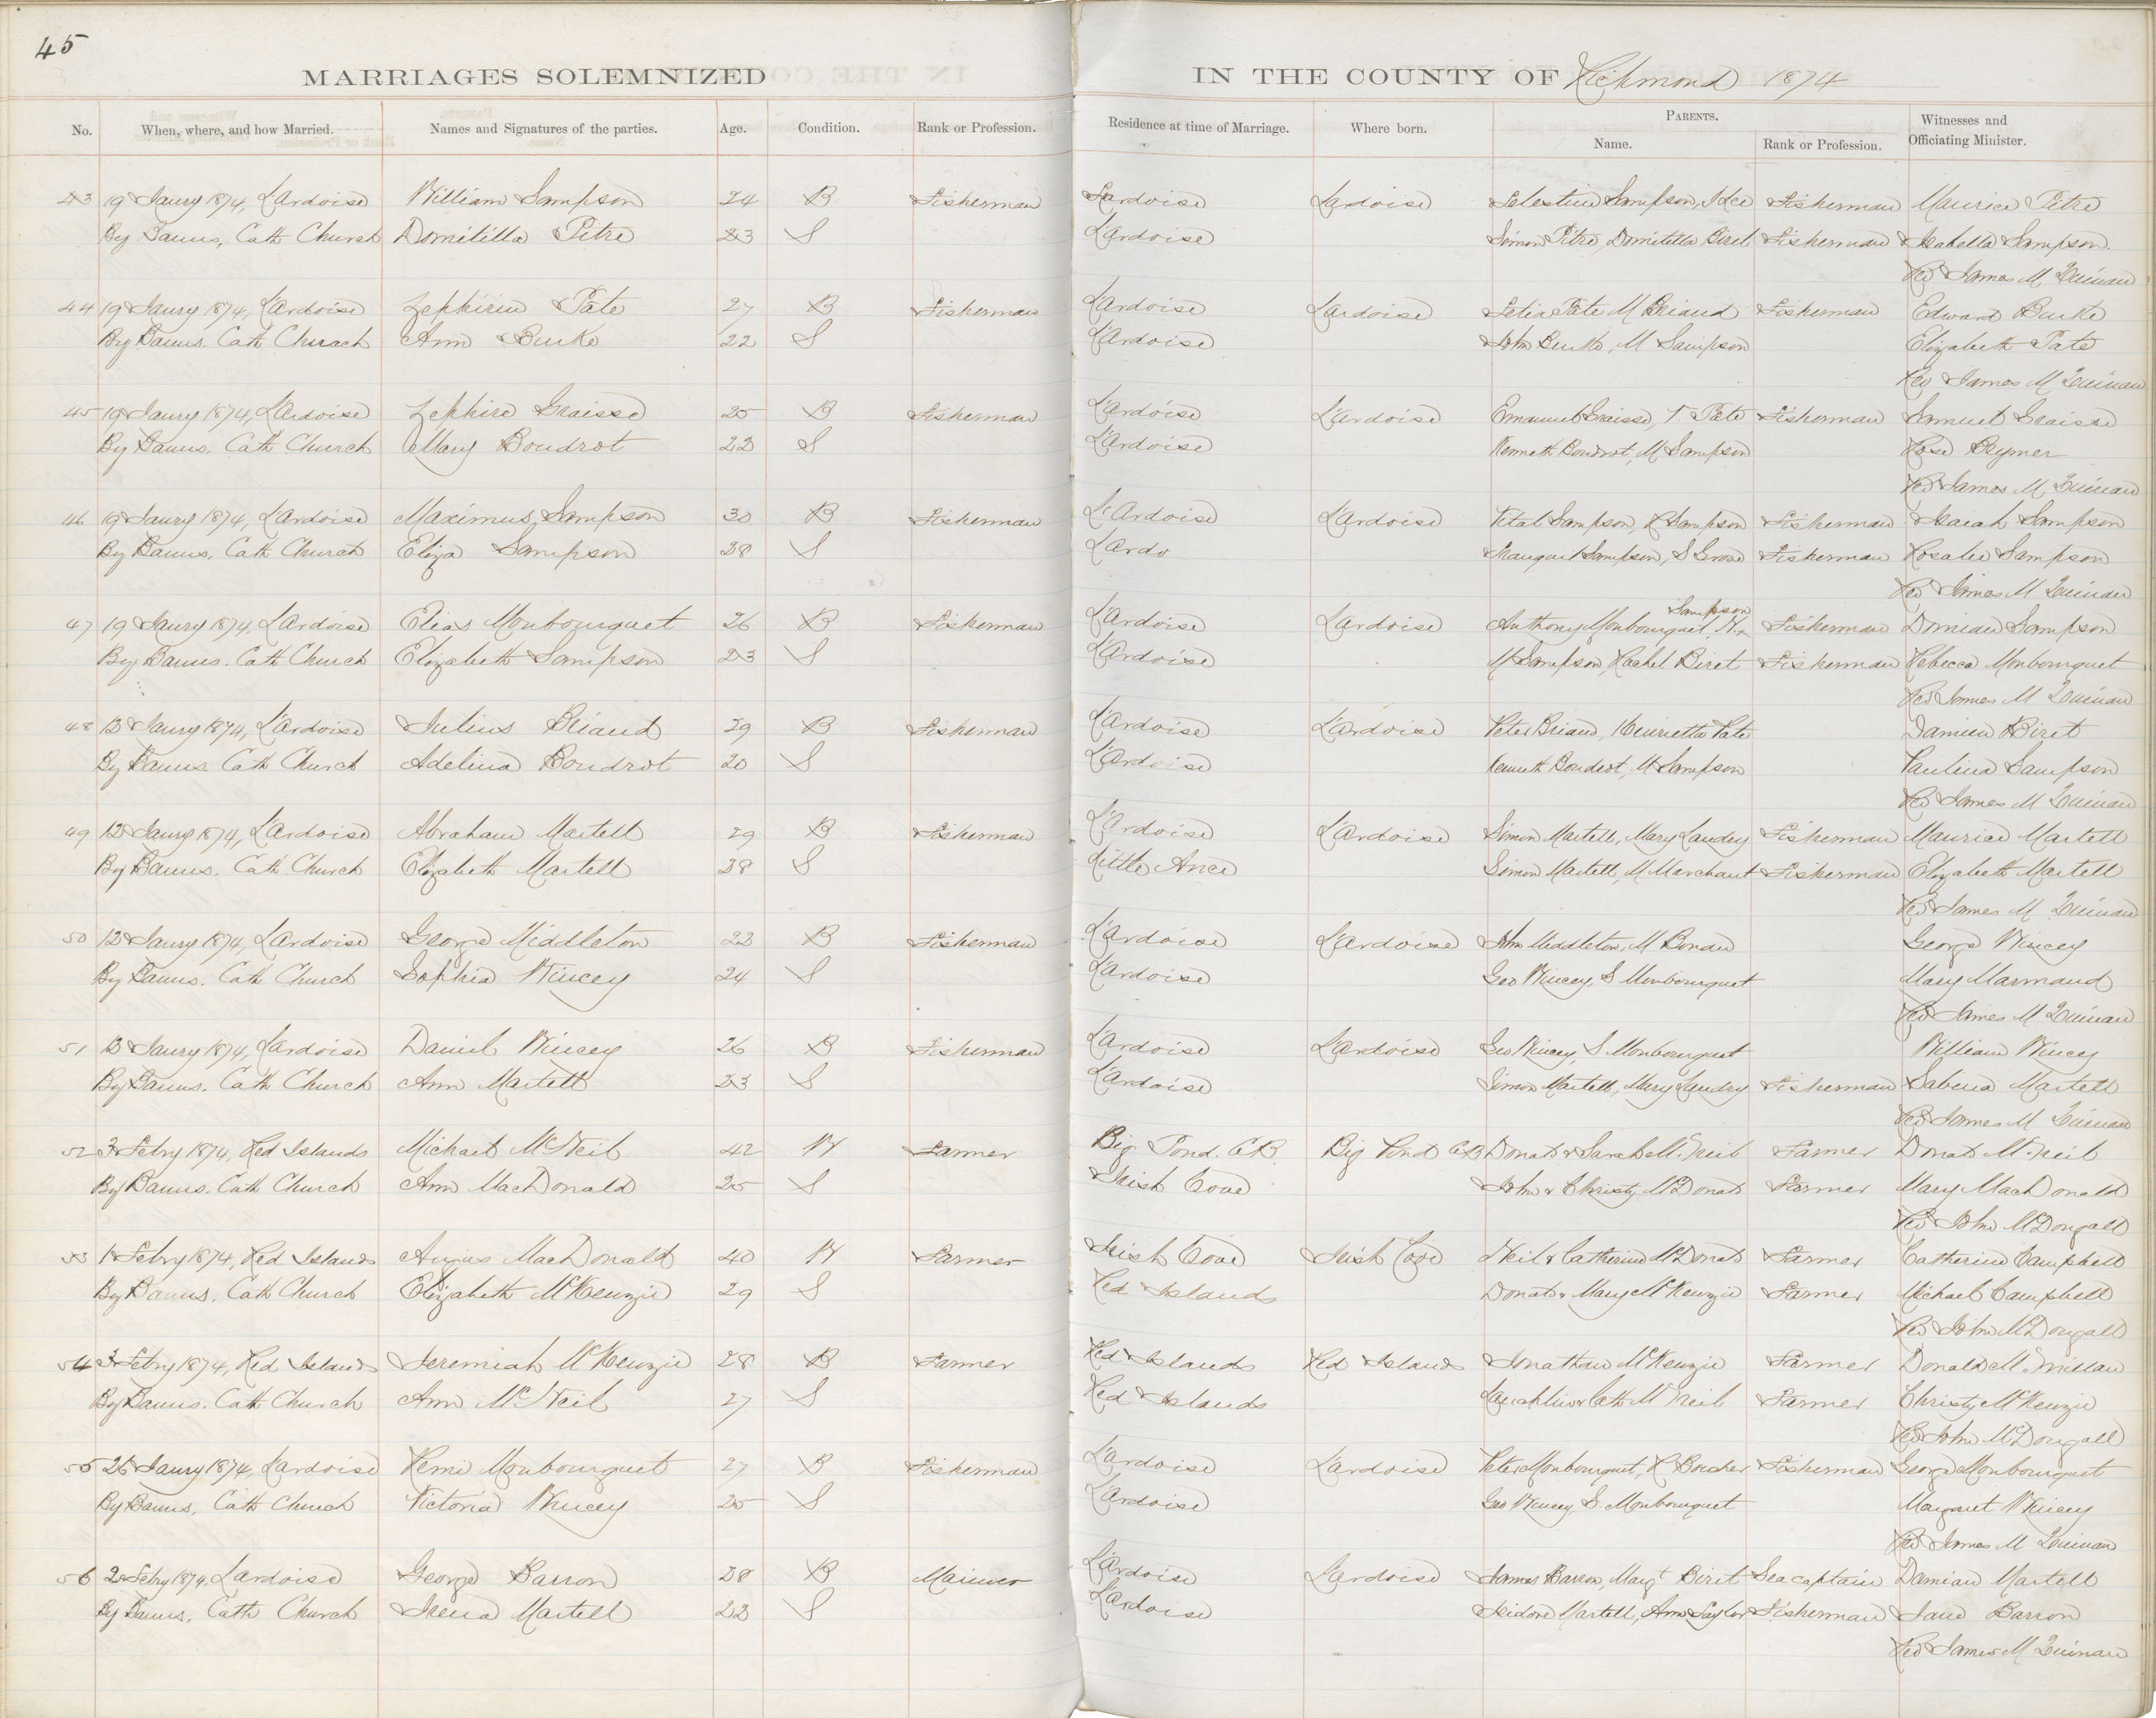 45
MARRIAGES SOLEMNIZED IN THE COUNTY OF Richmond 1874
No. When, where, and how Married. Names and Signatures of the parties. Age. Condition. Rank or Profession. Residence at time of Marriage. Where born. PARENTS. Name. Rank or Profession. Witnesses and Officiating Minister.
43 19 Jaury 1874, L'Ardoise William Sampson 24 B Fisherman L'Ardoise L'Ardoise Celestin Sampson, Fisherman Maurice Petre
By Banns, Cath Church Domitilla Petre 23 S L'Ardoise Simon Petre, Domitilla Biret Fisherman Isabella Sampson
Rev James M Quinan
44 19 Jaury 1874, L'Ardoise Zephirin Pate 27 B Fisherman L'Ardoise L'Ardoise Pate M Briand Fisherman Edward Burke
By Banns. Cath Church Ann Burke 22 S L'Ardoise John Burke, M Sampson Elizabeth Pate
Rev James M Quinan
45 19 Jaury 1874, L'Ardoise Zephire Graisse 25 B Fisherman L'Ardoise L'Ardoise Emanuel Graisse, T Pate Fisherman Samuel Graisse
By Banns. Cath Church Mary Boudrot 22 S L'Ardoise Kenneth Boudrot, M Sampson Rose Brymer
Rev James M Quinan
46 19 Jaury 1874, L'Ardoise Maximus Sampson 30 B Fisherman L'Ardoise L'Ardoise Vital Sampson, R Sampson Fisherman Isaiah Sampson
By Banns, Cath Church Eliza Sampson 28 S L'Ardo Sampson, S Fisherman Rosalie Sampson
Rev James M Quinan
47 19 Jaury 1874, L'Ardoise Elias Monbourquet 26 B Fisherman L'Ardoise L'Ardoise Anthony Monbourquet, Sampson Fisherman Domian Sampson
By Banns. Cath Church Elizabeth Sampson 23 S L'Ardoise M Sampson, Rachel Biret Fisherman Rebecca Monbourquet
Rev James M Quinan
48 12 Jaury 1874, L'Ardoise Julius Briand 29 B Fisherman L'Ardoise L'Ardoise Peter Briand, Henrietta Pate Damien Biret
By Banns. Cath Church Adelina Boudrot 20 S L'Ardoise Kenneth Boudrot, M Sampson Paulina Sampson
Rev James M Quinan
49 12 Jaury 1874, L'Ardoise Abraham Martell 29 B Fisherman L'Ardoise L'Ardoise Simon Martell, Mary Landry Fisherman Maurice Martell
By Banns. Cath Church Elizabeth Martell 28 S Little Ance Simon Martell, M Marchant Fisherman Elizabeth Martell
Rev James M Quinan
50 12 Jaury 1874, L'Ardoise George Middleton 22 B Fisherman L'Ardoise L'Ardoise John Middleton, M George Kincey
By Banns. Cath Church Sophia Kincey 24 S L'Ardoise Geo Kincey, S Monbourquet Mary Marmaud
Rev James M Quinan
51 12 Jaury 1874, L'Ardoise Daniel Kincey 26 B Fisherman L'Ardoise L'Ardoise Geo Kincey, S Monbourquet William Kincey
By Banns. Cath Church Ann Martell 23 S L'Ardoise Simon Martell, Mary Landry Fisherman Sabina Martell
Rev James M Quinan
52 3 Febry 1874, Red Islands Michael McNeil 42 W Farmer Big Pond. C.B. Big Pond CB Donald & Sarah McNeil Farmer Donald McNeil
By Banns. Cath Church Ann MacDonald 25 S Irish Cove John & Christy McDonald Farmer Mary MacDonald
Rev John McDougall
53 1 Febry 1874, Red Islands Angus MacDonald 40 W Farmer Irish Cove Irish Cove Neil & Catherine McDonald Farmer Catherine Campbell
By Banns. Cath Church Elizabeth McKenzie 29 S Red Islands Donald & Mary McKenzie Farmer Michael Campbell
Rev John McDougall
54 3 Febry 1874, Red Islands Jeremiah McKenzie 28 B Farmer Red Islands Red Islands Jonathan McKenzie Farmer Donald McMillan
By Banns. Cath Church Ann McNeil 27 S Red Islands Lauchlin & Cath McNeil Farmer Christy McKenzie
Rev John McDougall
55 26 Jaury 1874, L'Ardoise Remi Monbourquet 27 B Fisherman L'Ardoise L'Ardoise Peter Monbourquet, R Boucher Fisherman George Monbourquet
By Banns. Cath Church Victoria Kincey 25 S L'Ardoise Geo Kincey, S. Monbourquet Margaret Kincey
Rev James M Quinan
56 2 Febry 1874, L'Ardoise George Barron 28 B Mariner L'Ardoise L'Ardoise James Barron, Margt Biret Seacaptain Damian Martell
By Banns. Cath Church Irena Martell 22 S L'Ardoise Isidore Martell, Ann Taylor Fisherman Jane Barron
Rev James M Quinan